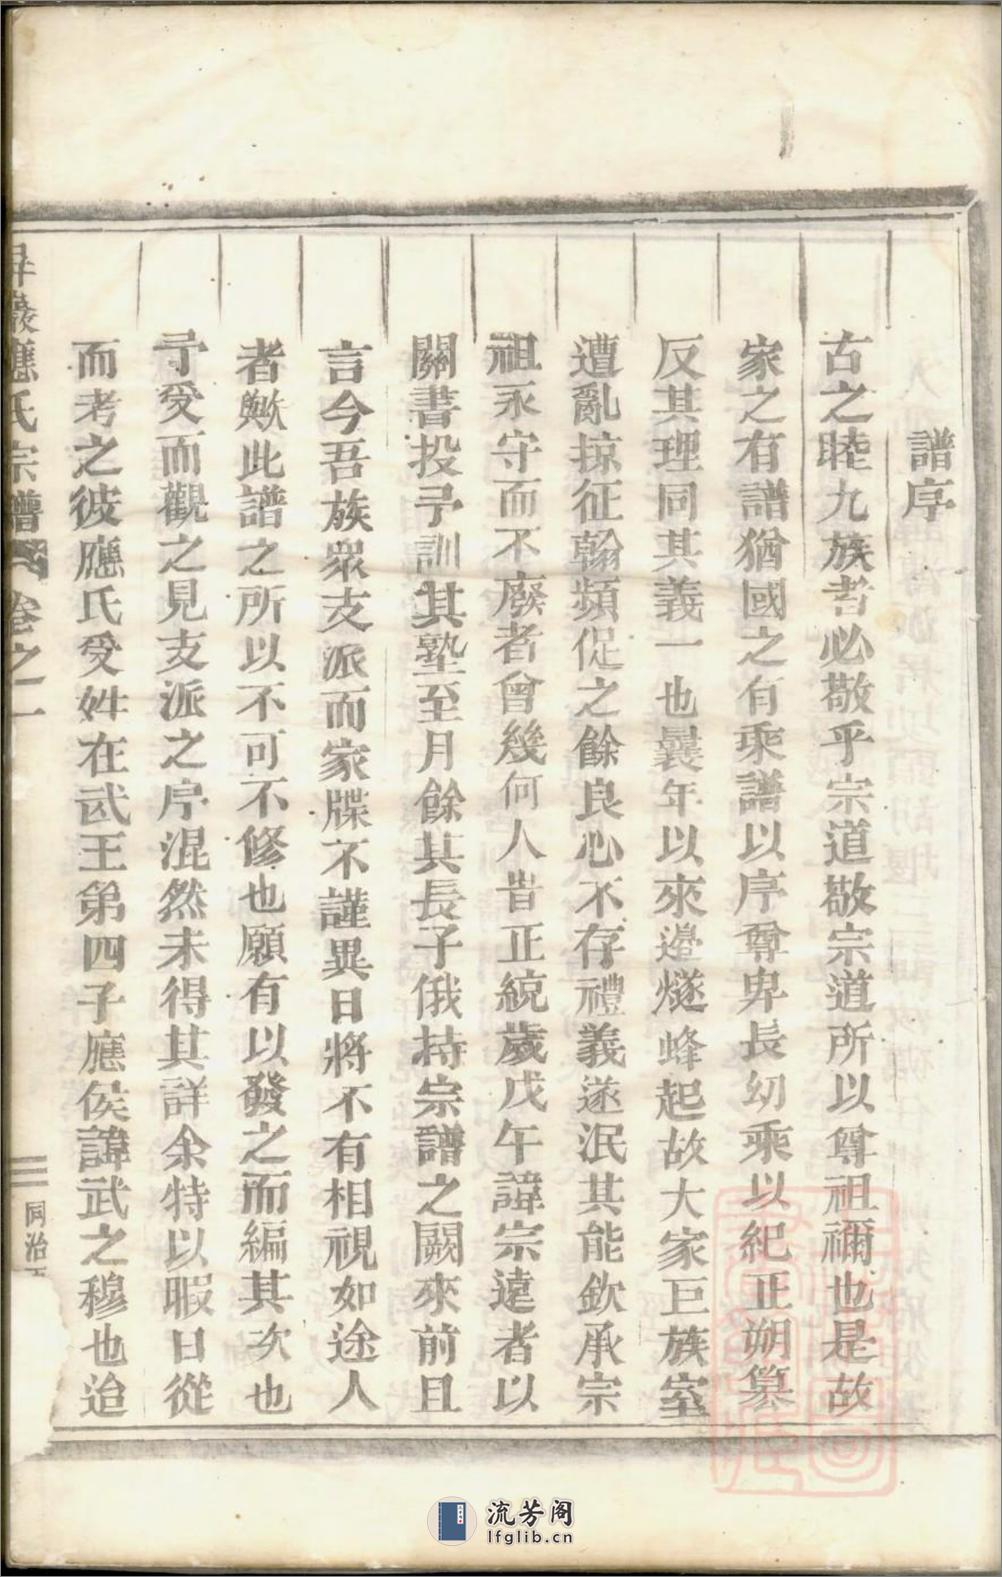 譜序
古之睦九族者必敬乎宗道敬宗道所以尊祖禰也是故
家之有譜猶國之有乘譜以序尊卑長幼乘以紀正朔篡
反其理同其義一也曩年以來邊燧蜂起故大家巨族室
遭亂掠征翰頻促之餘良心不存禮義遂泯其能欽承宗
祖永守而不廢者曾幾何人旹正統歲戊午諱宗遠者以
關書投予訓其塾至月餘其長子俄持宗譜之闕來前且
言今吾族衆支派而家牒不謹異日將不有相視如途人
者歟此譜之所以不可不修也願有以發之而編其次也
予受而觀之見支派之序混然未得其詳余特以暇日從
而考之彼應氏受姓在武王第四子應侯諱武之穆也迨
巖應氏宗譜 卷之一
同治
流芳阁
lfglib.cn